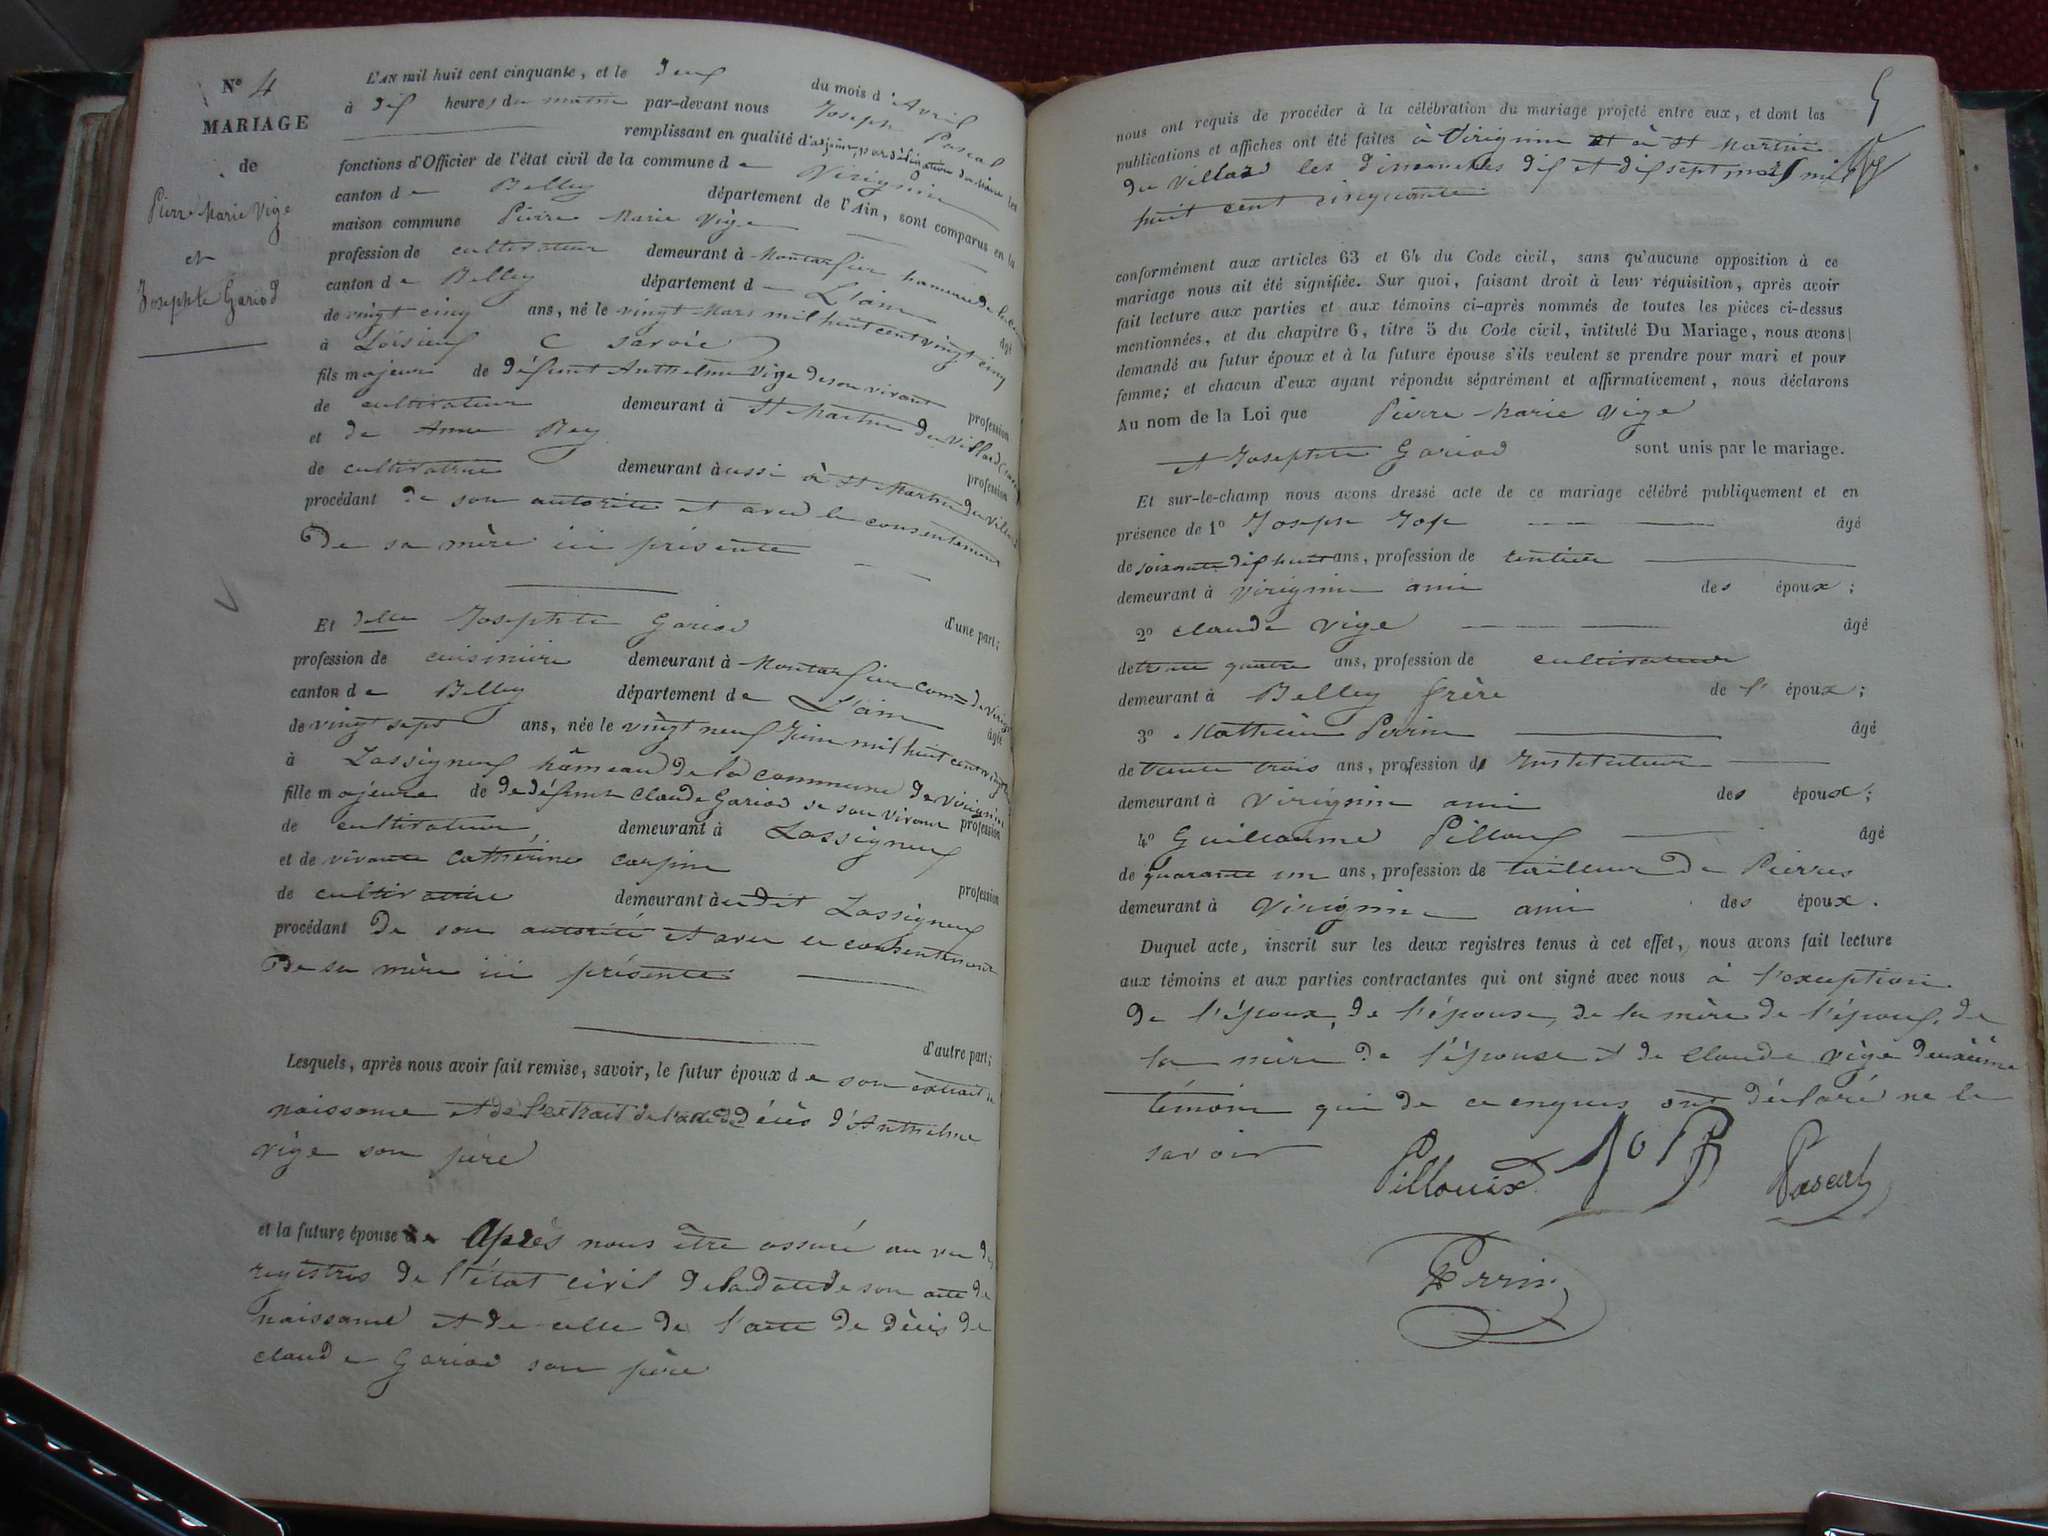 N° 4
MARIAGE
de
Pierre Marie Vige
et
Josephte Gariod
L'AN mil huit cent cinquante, et le deux du mois d'Avril
à dix heures du matin par-devant nous Joseph Pascal
remplissant en qualité d'adjoint, par délégation du Maire les
fonctions d'Officier de l'état civil de la commune de Virignin
canton de Belley département de l'Ain, sont comparus en la
maison commune Pierre Marie Vige
profession de cultivateur demeurant à Montarfier hameau de la
canton de Belley département de L'ain
âgé
de vingt cinq ans, né le vingt Mars mil huit cent vingt cinq
à Loisieux (Savoie)
fils majeur de défunt Anthelme Vige de son vivant profession
de cultivateur demeurant à St Martin du Villard
et de Anne Rey profession
de cultivatrice demeurant à aussi à St Martin du Villard
procédant de son autorité et avec le consentement
De sa mère ici présente
d'une part;
Et delle Josephte Gariod
profession de cuisinière demeurant à Montarfier comne de Virignin
canton de Belley département de L'ain
âgée
de vingt sept ans, née le vingt neuf Juin mil huit cent vingt
à Lassigneux hâmeau de la commune de Virignin
fille majeure de de défunt Claude Gariod de son vivant profession
de cultivateur demeurant à Lassigneux
et de vivante Cathérine Carpin
profession
de cultivatrice demeurant à udit Lassigneux
procédant De son autorité et avec le consentement
De sa mère ici présente
d'autre part;
Lesquels, après nous avoir fait remise, savoir, le futur époux de son extrait de
naissance et de l'extrait de l'acte de décès d'Anthelme
Vige son père
et la future épouse Après nous être assuré au vu des
registres de l'état civil De la date de son acte de
naissance et de celle de l'acte de décès de
Claude Gariod son père
5
nous ont requis de procéder à la célébration du mariage projeté entre eux, et dont les
publications et affiches ont été faites à Virignin et à St Martin
du Villard les dimanches dix et dix sept mars mil
huit cent cinquante
conformément aux articles 63 et 64 du Code civil, sans qu'aucune opposition à ce
mariage nous ait été signifiée. Sur quoi, faisant droit à leur réquisition, après avoir
fait lecture aux parties et aux témoins ci-après nommés de toutes les pièces ci-dessus
mentionnées, et du chapitre 6, titre 5 du Code civil, intitulé Du Mariage, nous avons
demandé au futur époux et à la future épouse s'ils veulent se prendre pour mari et pour
femme; et chacun d'eux ayant répondu séparément et affirmativement, nous déclarons
Au nom de la Loi que Pierre Marie Vige
et Josephte Gariod sont unis par le mariage.
Et sur-le-champ nous avons dressé acte de ce mariage célébré publiquement et en
présence de 1° Joseph Jop âgé
de soixante dix huit ans, profession de rentier
demeurant à Virignin ami des époux;
2° Claude Vige âgé
de trente quatre ans, profession de cultivateur
demeurant à Belley frère de l'époux;
3° Mathieu Perrin âgé
de trente trois ans, profession d' Instituteur
demeurant à Virignin ami des époux;
4° Guillaume Pilloux âgé
de quarante un ans, profession de tailleur De Pierres
demeurant à Virignin ami des époux.
Duquel acte, inscrit sur les deux registres tenus à cet effet, nous avons fait lecture
aux témoins et aux parties contractantes qui ont signé avec nous à l'exception
De l'époux, de l'épouse, de la mère de l'époux, de
la mère de l'épouse et de Claude Vige deuxième
témoin qui de ce enquis ont déclaré ne le
savoir
Pillouix Jop Pascal
Perrin